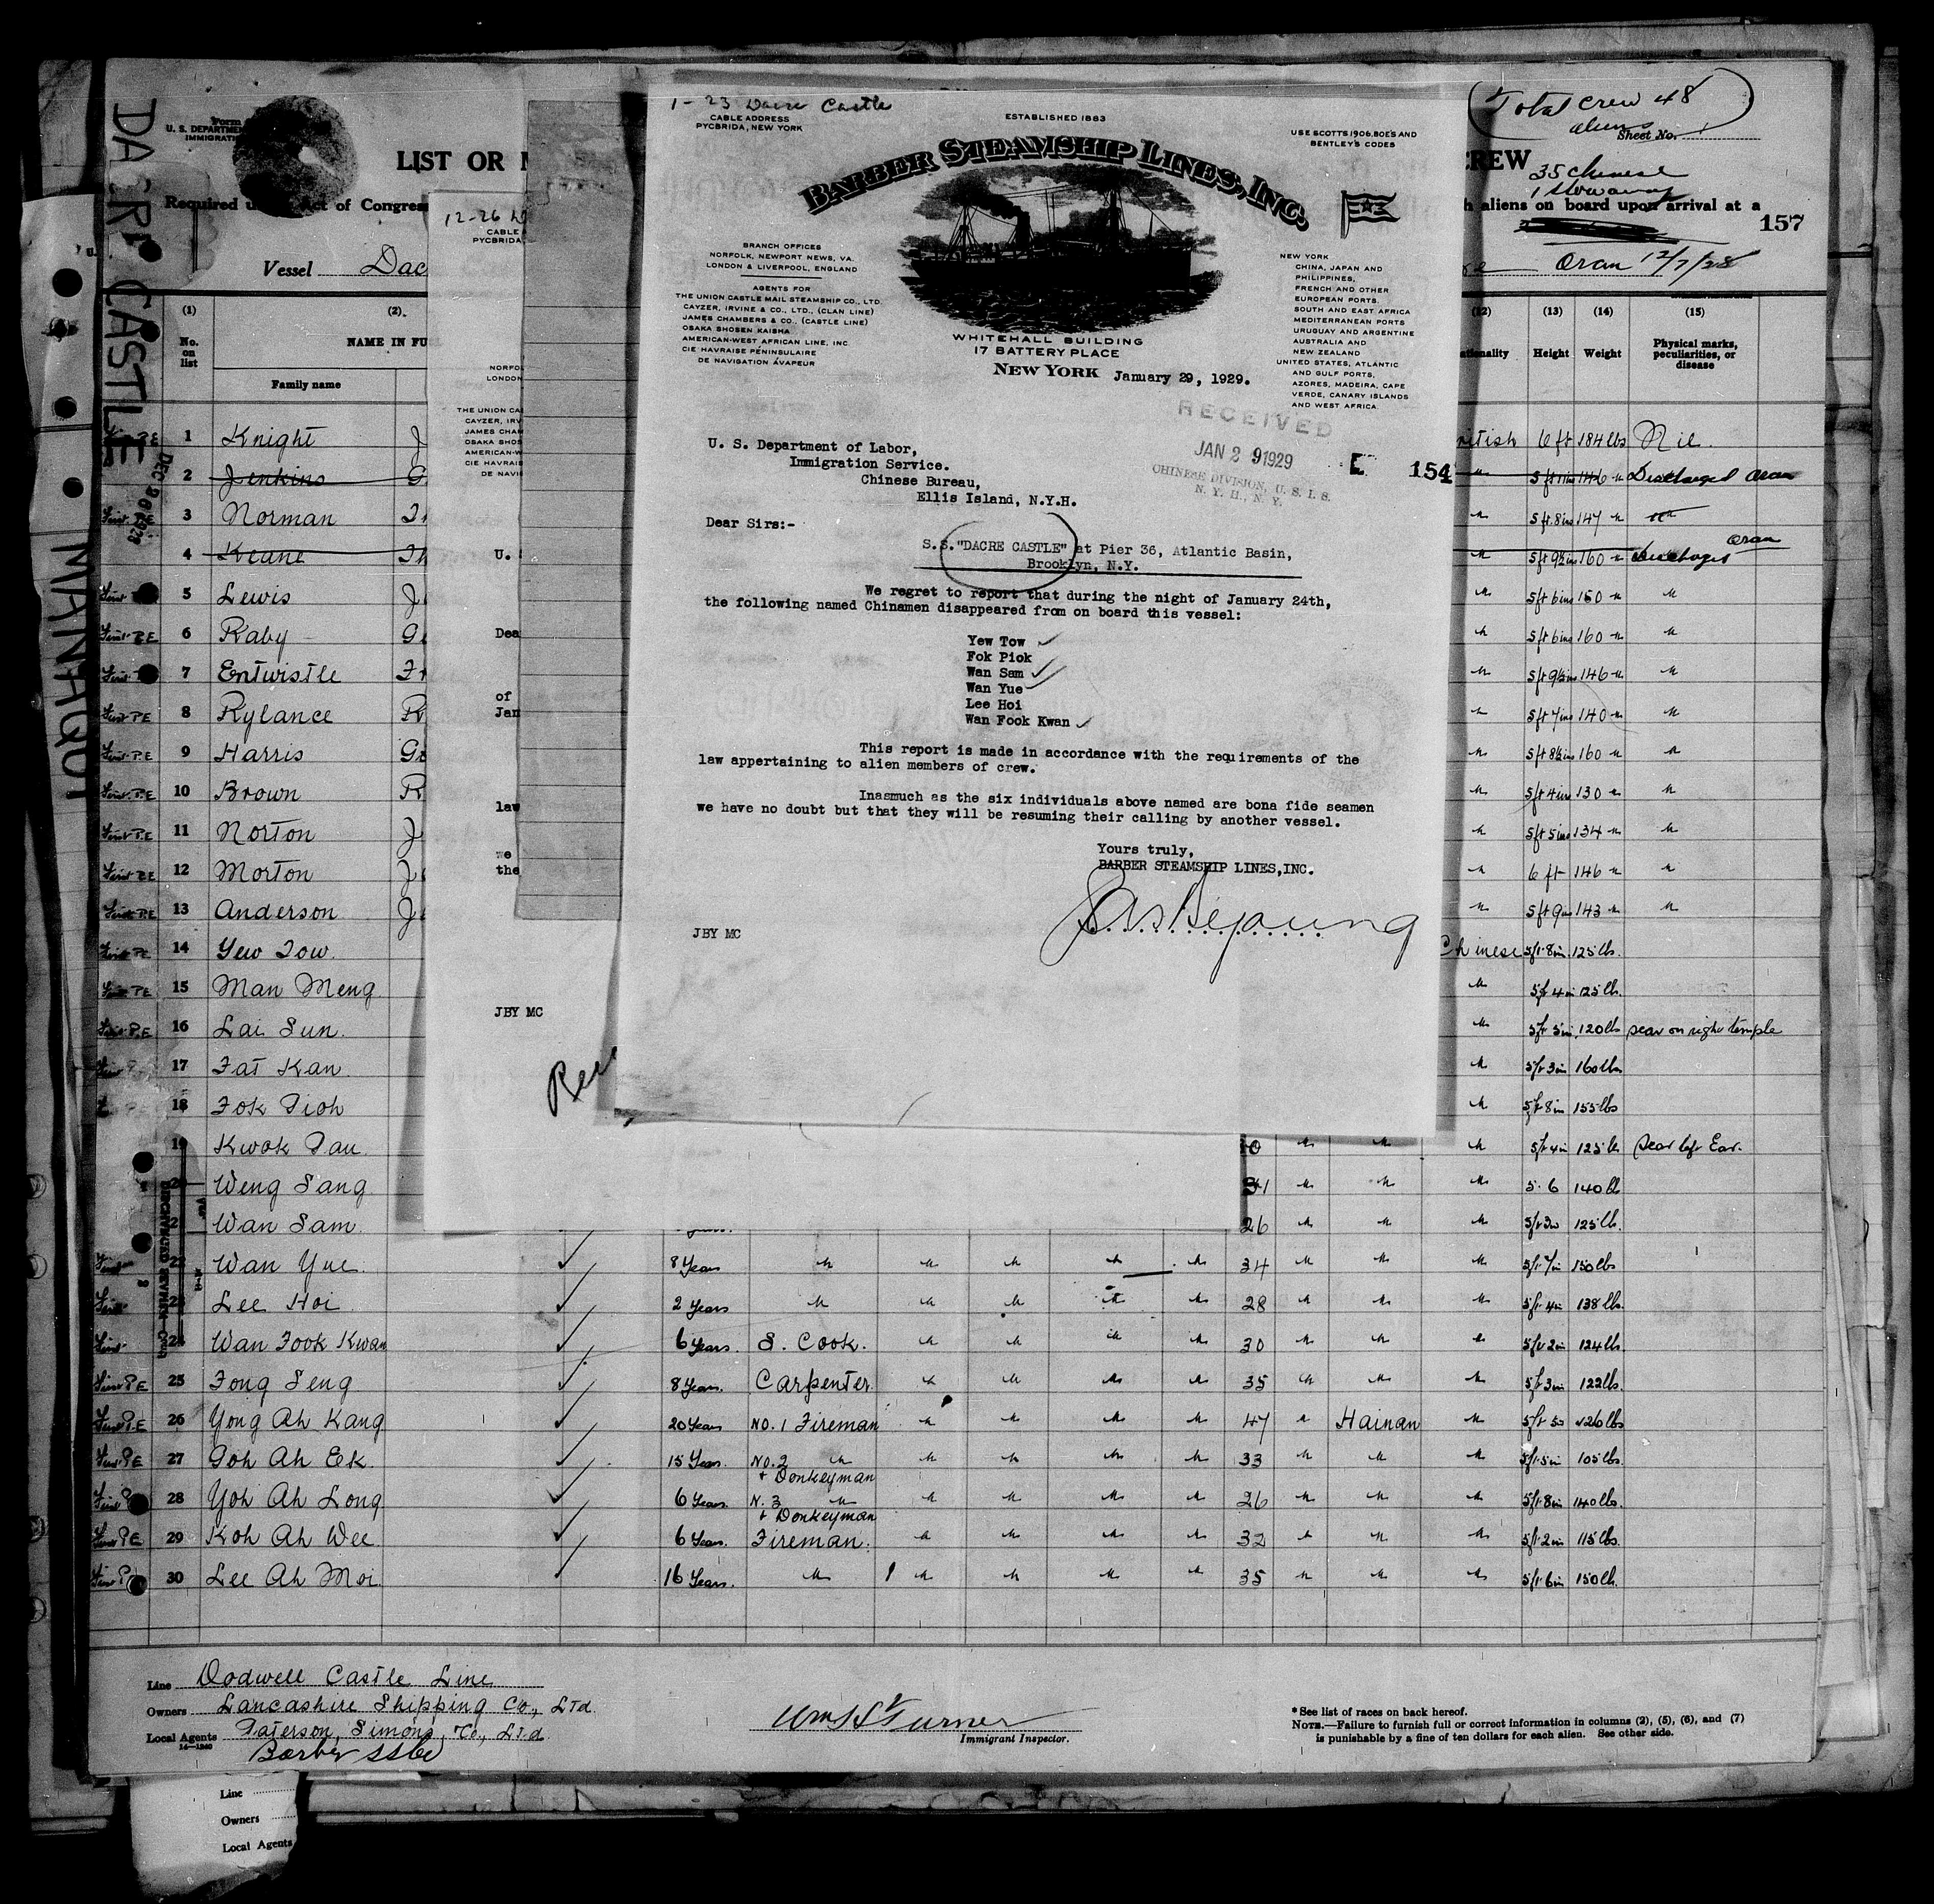 DACRE CASTLE
MANHQUI
DEC 26 1928
Form
U. S. DEPARTMENT
IMMIGRATION
LIST OR
Required u Act of Congress
Vessel Dac
(1) (2)
No. on list
NAME IN FU
Family name
12-26
CABLE A
PYCBRIDA,
NORFO
LONDON
THE UNION CA
CAYZER, IRV
JAMES CHAM
OSAKA SHOS
AMERICAN-W
CIE HAVRAIS
DE NAVI
U. S
Dea
of
Jan
law
we
the
JBY MC
Total crew 48
aliens
Sheet No. 1
CREW
35 Chinese
1 stowaway
h aliens on board upon arrival at a
157
Oran 12/7/28
(12) (13) (14) (15)
ationality Height Weight Physical marks, peculiarities, or disease
1-23 Dacre Castle
CABLE ADDRESS
PYCBRIDA, NEW YORK
ESTABLISHED 1883
USE SCOTTS 1906, BOE'S AND
BENTLEY'S CODES
BARBER STEAMSHIP LINES, INC.
BRANCH OFFICES
NORFOLK, NEWPORT NEWS, VA.
LONDON & LIVERPOOL, ENGLAND
AGENTS FOR
THE UNION CASTLE MAIL STEAMSHIP CO., LTD.
CAYZER, IRVINE & CO., LTD., (CLAN LINE)
JAMES CHAMBERS & CO., (CASTLE LINE)
OSAKA SHOSEN KAISHA
AMERICAN-WEST AFRICAN LINE, INC
CIE HAVRAISE PÉNINSULAIRE
DE NAVIGATION ÁVAPEUR
NEW YORK
CHINA, JAPAN AND
PHILIPPINES,
FRENCH AND OTHER
EUROPEAN PORTS.
SOUTH AND EAST AFRICA
MEDITERRANEAN PORTS
URUGUAY AND ARGENTINE
AUSTRALIA AND
NEW ZEALAND
UNITED STATES, ATLANTIC
AND GULF PORTS,
AZORES, MADEIRA, CAPE
VERDE, CANARY ISLANDS
AND WEST AFRICA.
WHITEHALL BUILDING
17 BATTERY PLACE
NEW YORK January 29, 1929.
RECEIVED
JAN 29 1929
CHINESE DIVISION, U. S. I. S.
N. Y. H., N. Y.
E 154
U. S. Department of Labor,
Immigration Service.
Chinese Bureau,
Ellis Island, N.Y.H.
Dear Sirs:-
S.S."DACRE CASTLE" at Pier 36, Atlantic Basin,
Brooklyn, N.Y.
We regret to report that during the night of January 24th,
the following named Chinamen disappeared from on board this vessel:
Yew Tow
Fok Piok
Wan Sam
Wan Yue
Lee Hoi
Wan Fook Kwan
This report is made in accordance with the requirements of the
law appertaining to alien members of crew.
Inasmuch as the six individuals above named are bona fide seamen
we have no doubt but that they will be resuming their calling by another vessel.
Yours truly,
BARBER STEAMSHIP LINES,INC.
JBY MC
1 Knight J ritish 6 ft 184 lbs Nil.
2 Jenkins G " 5 ft 11 ins 146 " Discharged Oran
3 Norman " 5 ft. 8 ins 147 "
4 Keane Th " 5 ft 9½ ins 160 " Discharged Oran
5 Lewis J " 5 ft 6 ins 150 " "
6 Raby Ge " 5 ft 6 ins 160 " "
7 Entwistle Fr " 5 ft 9½ ins 146 " "
8 Rylance R " 5 ft 7 ins 140 " "
9 Harris Ge " 5 ft 8½ ins 160 " "
10 Brown R " 5 ft 4 ins 130 " "
11 Norton J " 5 ft 5 ins 134 " "
12 Morton J " 6 ft 146 " "
13 Anderson J " 5 ft 9 ins 143 " "
14 Yew Tow. Chinese 5 ft 8 in. 125 lbs.
15 Man Meng " 5 ft 4 in 125 lb.
16 Lai Sun. " 5 ft 5 in. 120 lb scar on right temple
17 Fat Kan. " 5 ft 3 in 160 lbs
18 Fok Pioh " 5 ft 8 in 155 lbs
19 Kwok Pau. " " " 5 ft 4 in 125 lb Scar left Ear.
20 Weng Sang. 31 " " " 5. 6 140 lb
21 Wan Sam. 26 " " " 5 ft 3 in 125 lb.
22 Wan Yue. 8 Years " " " " " 34 " " " 5 ft 7 in 150 lbs
23 Lee Hoi. 2 Years " " " " " 28 " " " 5 ft 4 in 138 lbs.
24 Wan Fook Kwan 6 Years. S. Cook. " " " " 30 " " " 5 ft 2 in 124 lb.
25 Fong Seng 8 Years. Carpenter " " " " 35 " " " 5 ft 3 in 122 lb.
26 Yong Ah Kang 20 Years No. 1 Fireman " " " " 47 " Hainan " 5 ft 5 in 126 lbs
27 Goh Ah Ek. 15 Years. No. 2 " + Donkeyman " " " " 33 " " " 5 ft 5 in 105 lbs.
28 Yoh Ah Long 6 Years. N. 3 " + Donkeyman " " " " 26 " " " 5 ft 8 in 140 lbs.
29 Koh Ah Wee 6 Years. Fireman. " " " " 32 " " " 5 ft 2 in 115 lbs.
30 Lee Ah Moi. 16 Years. " " " " " 35 " " " 5 ft 6 in 150 lb.
Line Dodwell Castle Line
Owners Lancashire Shipping Co., Ltd.
Local Agents Paterson, Simons, & Co., Ltd.
14-1240
Barber SS Co
Wm H Turner
Immigrant Inspector.
* See list of races on back hereof.
NOTE.—Failure to furnish full or correct information in columns (2), (5), (6), and (7)
is punishable by a fine of ten dollars for each alien. See other side.
Line
Owners
Local Agents